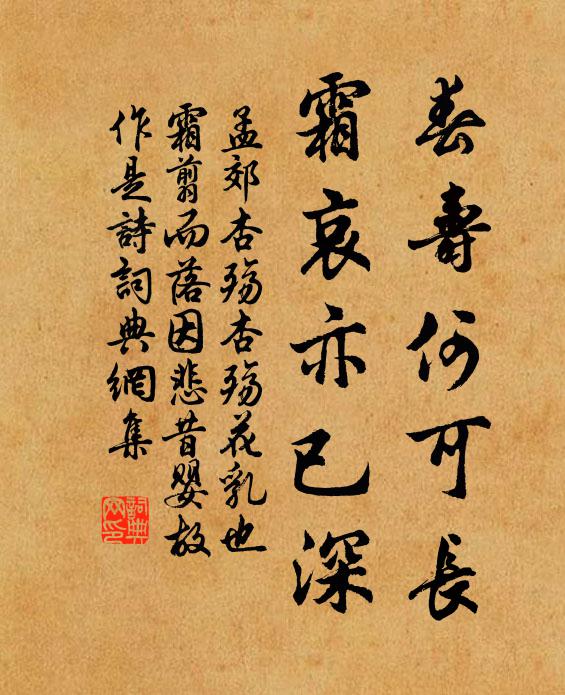 春壽何可長
霜哀亦已深
孟郊杏殤杏殤花乳也
霜翦而落因悲昔嬰故
作是詩詞典網集
詞典
网印